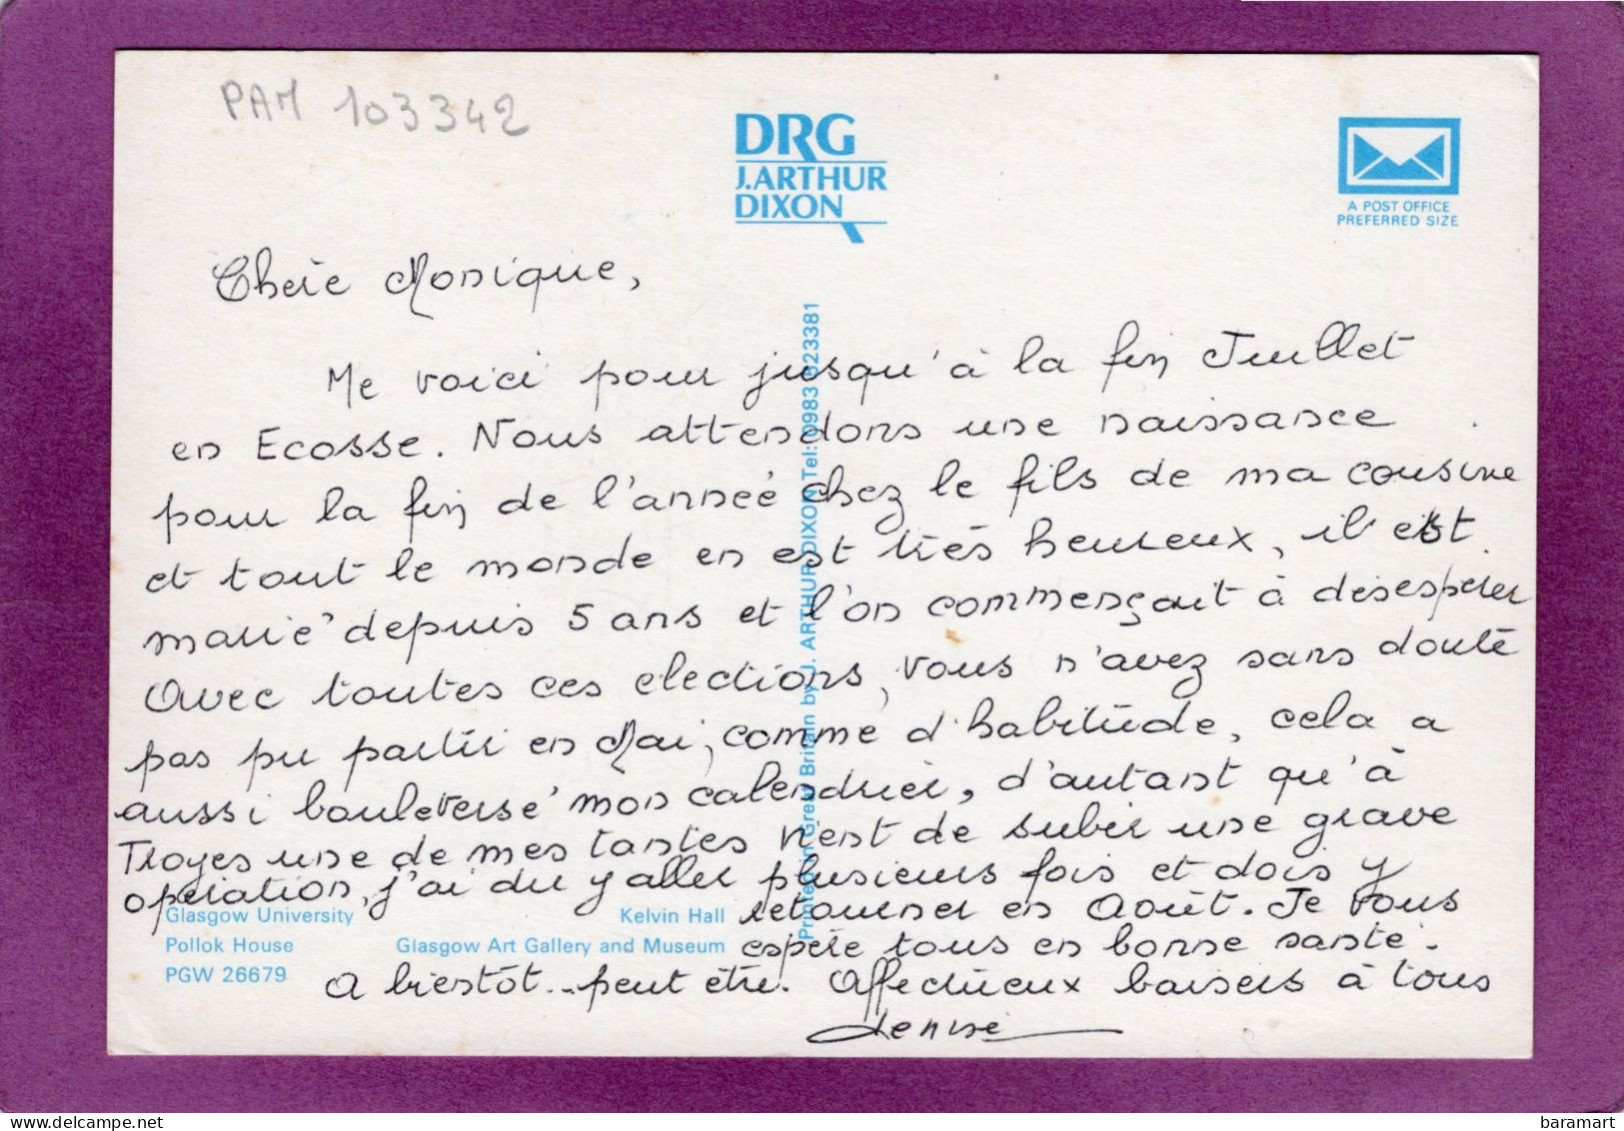 PAM 103342
DRG
J.ARTHUR
DIXON
A POST OFFICE
PREFERRED SIZE
Chère Monique,
Me voici pour jusqu'à la fin Juillet
en Ecosse. Nous attendons une naissance
pour la fin de l'année chez le fils de ma cousine
et tout le monde en est très heureux, il est
marié depuis 5 ans et l'on commençait à désespérer
Avec toutes ces elections, vous n'avez sans doute
pas pu partir en Mai, comme d'habitude, cela a
aussi bouleversé mon calendrier, d'autant qu'à
Troyes une de mes tantes vient de subir une grave
opération, j'ai du y aller plusieurs fois et dois y
retourner en Août. Je vous
espère tous en bonne santé.
A bientôt... peut être. Affectueux baisers à tous
denise
Printed in Great Britain by J. ARTHUR DIXON Tel: 0983 523381
Glasgow University
Kelvin Hall
Pollok House
Glasgow Art Gallery and Museum
PGW 26679
baramart